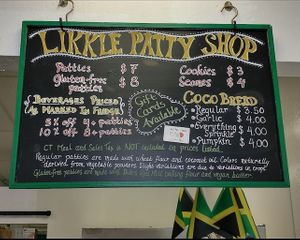 LIKKLE PATTY SHOP
Patties $ 7
Gluten-free $ 8
patties
Cookies $ 3
Scones $ 4
Beverages Priced
As Marked In Fridge
5% off 4+ patties
10% off 8+ patties
Gift
Cards
Available
COCO BREAD
Regular $ 3.50
Garlic $ 4.00
Everything
Sprinkle $ 4.00
Pumpkin $ 4.00
CT Meal and Sales Tax is NOT included in prices listed.
Regular patties are made with wheat flour and coconut oil. Colors naturally
derived from vegetable powders. Slight variations are due to variations in crops!
Gluten-free patties are made with flour and vegan butter.